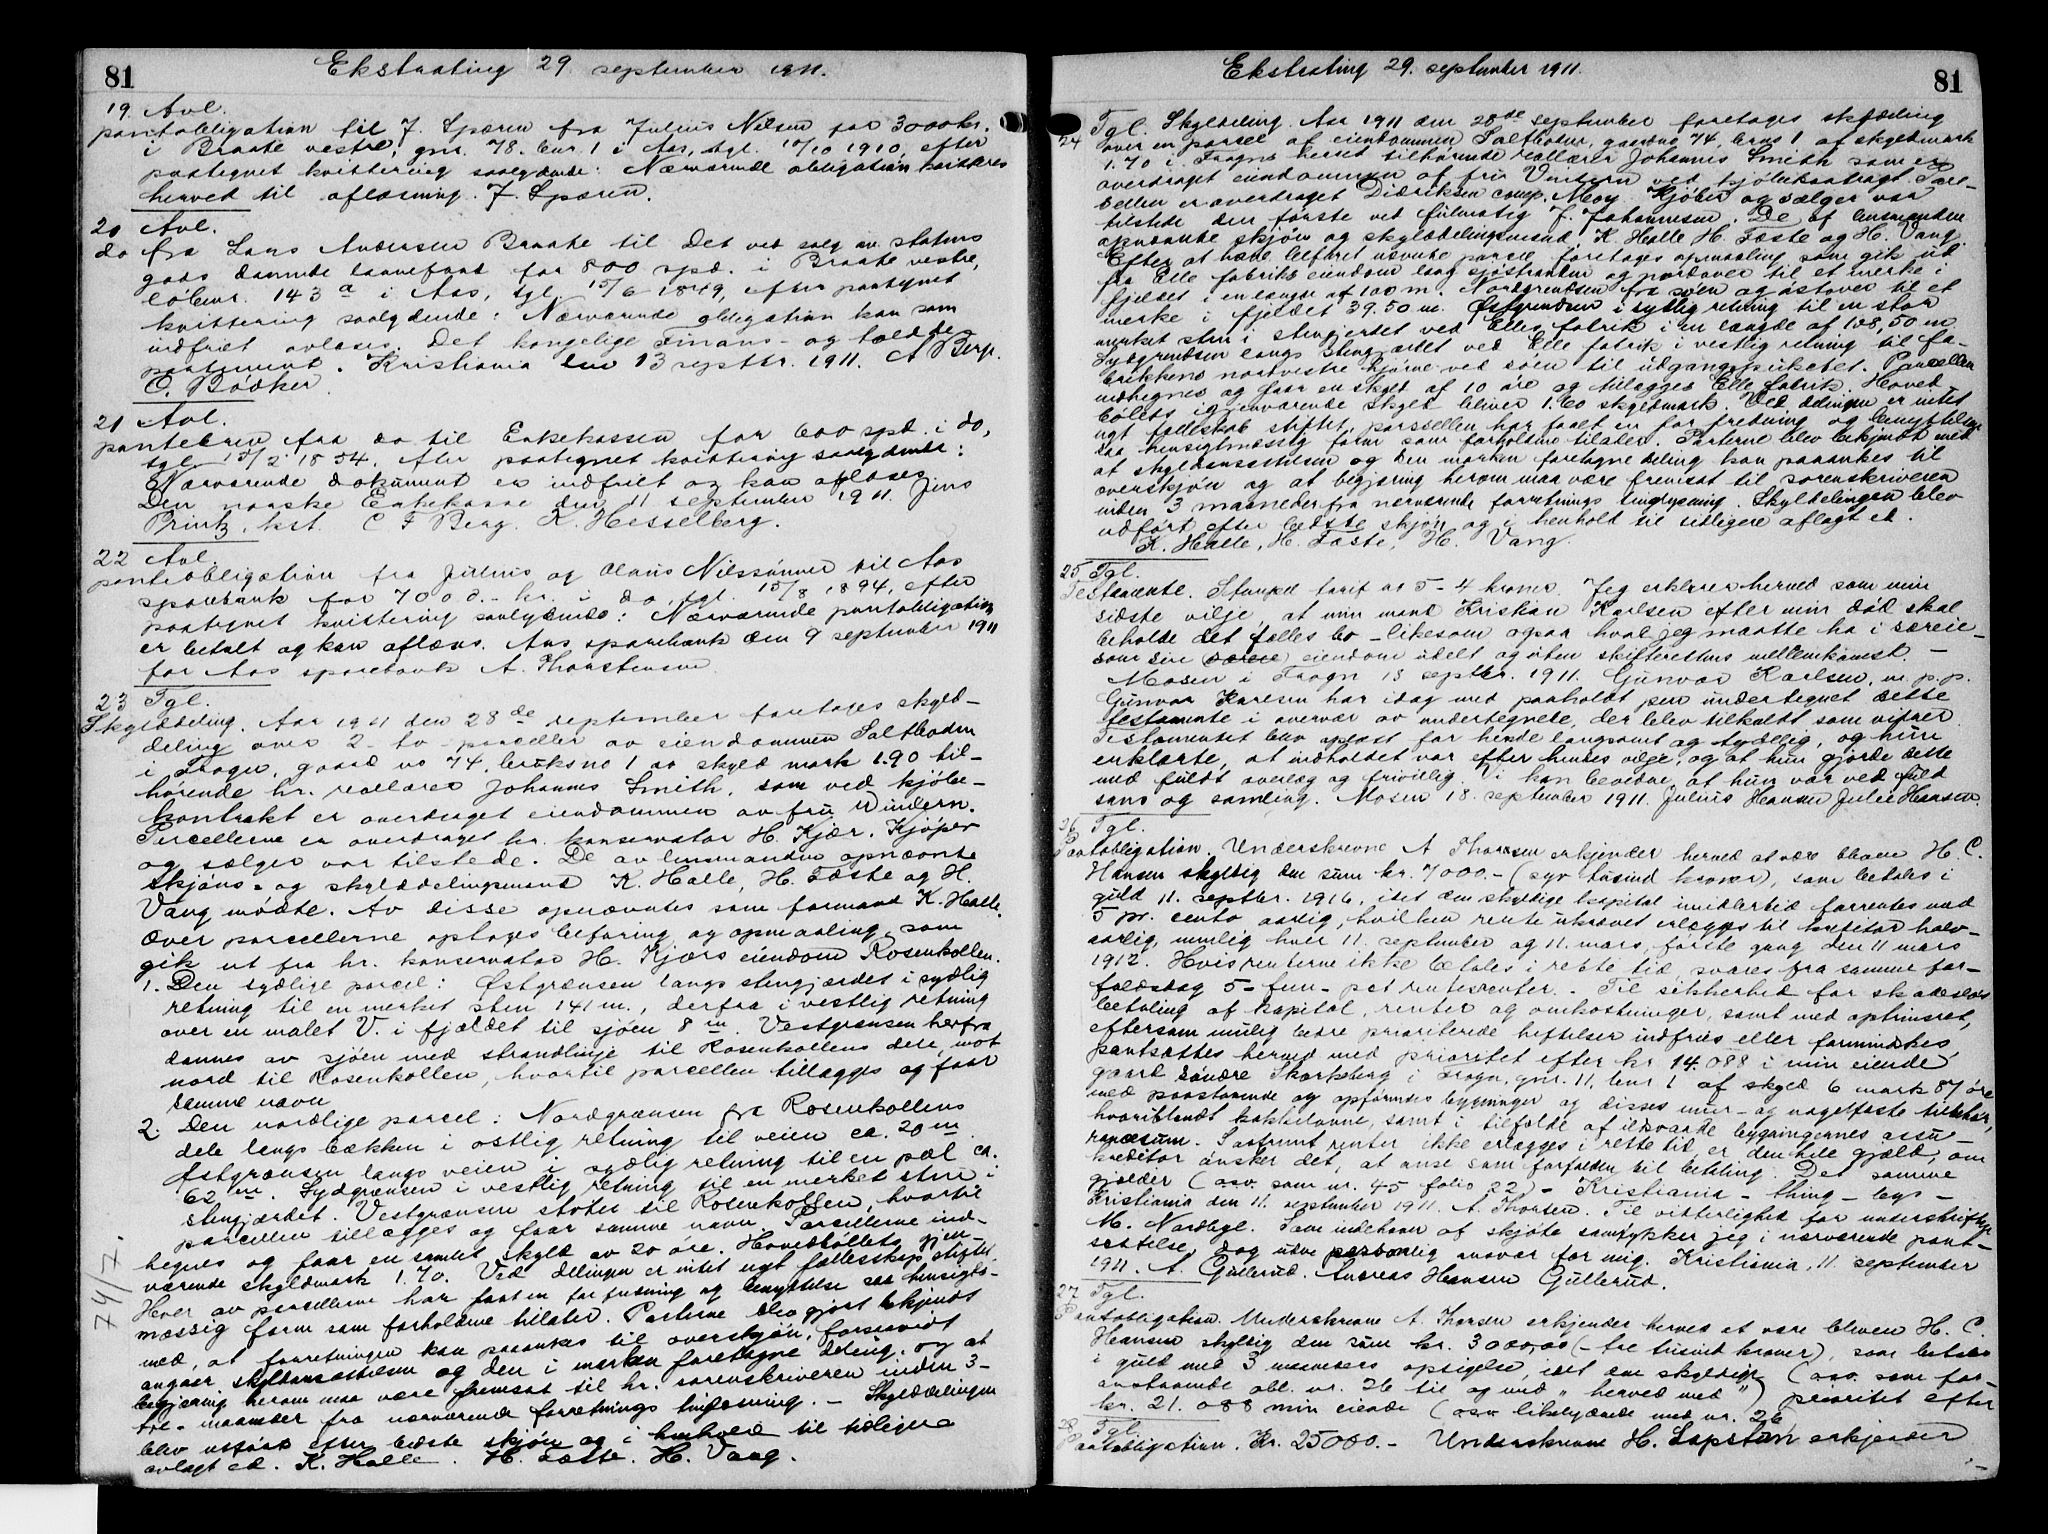 81
Ekstrating 29. september 1911.
19. Avl.
pantobligation til J. Sparen fra Julius Nilsen for 3000 kr.
i Braate vestre, gnr. 78. bnr. 1 i Aas, tgl. 10/10 1910, efter
paategnet kvittering saalydende: Nærværende obligation kvitteres
herved til aflæsning. J. Sparen.
20 Avl.
do fra Lars Andersen Braate til Det ved salg av statens
gods dannede laanefond for 800 spd. i Braate vestre,
løbenr. 143 a i Aas, tgl. 15/6 1849, efter paategnet
kvittering saalydende: Nærværende obligation kan som
indfriet avlæses. Det kongelige Finans- og tolddepartement.
Kristiania den 13 septbr. 1911. A Berg.
O. Bödker.
21 Avl.
pantebrev fra do til Enkekassen for 600 spd. i do,
tgl. 15/2 1854, efter paategnet kvittering saalydende:
Nærværende dokument er indfriet og kan aflæses.
Den norske Enkekasse den 11 september 1911. Jens
Printz, kst. C F Berg. K. Hesselberg.
22 Avl.
pantobligation fra Julius og Olaus Nilssönner til Aas
sparebank for 7000.- kr. i do, tgl. 15/8 1894, efter
paategnet kvittering saalydende: Nærværende pantobligation
er betalt og kan aflæses. Aas sparebank den 9 september 1911
for Aas sparebank A. Thorstensen
23 Tgl.
Skylddeling. Aar 1911 den 28de september foretoges skyld-
deling over 2 - to - parceller av eiendommen Saltboden
i Frogn, gaard no 74, bruksno 1 av skyld mark 1.90 til-
hørende hr. reallærer Johannes Smith, som ved kjøbe-
kontrakt er overdraget eiendommen av fru Windern.
Parcellerne er overdraget hr. konservator H. Kjær. Kjöper
og sælger var tilstede. De av lensmanden opnævnte
skjöns- og skylddelingsmænd K. Halle, H. Fæste og H.
Vang mødte. Av disse opnævntes som formand K. Halle.
Over parcellerne optoges befaring og opmaaling, som
gik ut fra hr. konservator H. Kjærs eiendom Rosenkollen.
1. Den sydlige parcel: Østgrænsen langs stengjærdet i sydlig
retning til en merket sten 141 m., derfra i vestlig retning
over en malet V. i fjeldet til sjøen 8 m. Vestgrænsen herfra
dannes av sjøen med strandlinje til Rosenkollens dele mot
nord til Rosenkollen, hvortil parcellen tillægges og faar
samme navn
2. Den nordlige parcel: Nordgrænsen fra Rosenkollens
dele langs bækken i østlig retning til veien ca. 20 m
Østgrænsen langs veien i sydlig retning til en pæl ca.
62 m. Sydgrænsen i vestlig retning til en merket sten i
stengjærdet. Vestgrænsen støter til Rosenkollen, hvortil
parcellen tillægges og faar samme navn. Parcellerne ind-
hegnes og faar en samlet skyld av 20 öre. Hovedbölets gjen-
værende skyldmark 1.70. Ved delingen er intet nyt fællesskap stiftet.
Hver av parcellerne har faat en for fredning og benyttelse saa hensigts-
mæssig form som forholdene tillater. Parterne blev gjort bekjendt
med, at forretningen kan paaankes til overskjön, forsaavidt
angaar skyldansættelsen og den i marken foretagne deling, og at
begjæring herom maa være fremsat til hr. sorenskriveren inden 3-
tre - maaneder fra nærværende forretnings tinglæsning. - Skylddelingen
blev utført efter bedste skjön og i henhold til tidligere
avlagt ed. K. Halle. H. Fæste. H. Vang.
74/7.
Ekstrating 29. september 1911.
81
24 Tgl. Skylddeling. Aar 1911 den 28de september foretoges skylddeling
over en parcel af eiendommen Saltboden, gaardno 74, brno 1 af skyldmark
1.70 i Frogn herred tilhørende reallærer Johannes Smith som er
overdraget eiendommen af fru Vindern ved kjöbekontragt. Par-
cellen er overdraget Didriksen comp. Moss. Kjöber og sælger var
tilstede den første ved fulmægtig J. Johannesen. De af lensmanden
opnævnte skjön og skylddelingsmænd K. Halle H. Fæste og H. Vang.
Efter at have befaret nævnte parcel foretoges opmaaling som gik ut
fra Elle fabriks eiendom langs sjöstranden og nordover til et merke i
fjeldet i en længde af 100 m. Nordgrendsen fra söen og østover til et
merke i fjeldet 39.50 m. Østgrendsen i sydlig retning til en stor
merket sten i stengjerdet ved Elles fabrik i en længde af 108,50 m
Sydgrendsen langs stengjærdet ved Elle fabrik i vestlig retning til fa-
brikkens nordvestre hjörne ved söen til udgangspunktet. Parcellen
indhegnes og faar en skyld af 10 öre og tillægges Elle fabrik. Hoved
bölets igjenværende skyld bliver 1.60 skyldmark. Ved delingen er intet
nyt fælleskab stiftet, parcellen har faaet en for fredning og benyttelse
saa hensigtmæssig form som forholdene tilader. Parterne blev bekjendt med
at skyldansættelsen og den i marken foretagne deling kan paaankes til
overskjön og at begjæring herom maa være fremsat til sorenskriveren
inden 3 maaneder fra nærværende forretnings tinglysning. Skylddelingen blev
udført efter bedste skjön og i henhold til tidligere aflagt ed.
K. Halle, H. Fæste, H. Vang.
25 Tgl.
Testamente. Stempel tarif nr 5 - 4 kroner. Jeg erklærer herved som min
sidste vilje, at min mand Kristian Karlsen efter min död skal
beholde det fælles bo - likesom ogsaa hvad jeg maatte ha i særeie -
som sin (særeie) eiendom udelt og uten skifterettens mellemkomst. -
Mosen i Frogn 18 septbr. 1911. Gunvor Karlsen, m. p. p.
Gunvor Karlsen har idag med paaholdt pen undertegnet dette
testamente i overvær av undertegnede, der blev tilkaldt som vitner
Testamentet blev oplæst for hende langsomt og tydelig, og hun
erklærte, at indholdet var efter hendes vilje, og at hun gjorde dette
med fuldt overlæg og frivillig. Vi kan bevidne, at hun var ved fuld
sans og samling. Mosen 18. september 1911. Julius Hansen Julie Hansen.
26 Tgl.
Pantobligation. Underskrevne A Thorsen erkjender herved at være bleven H. C.
Hansen skyldig den sum kr. 7000.- (syv tusind kroner), som betales i
guld 11. septbr. 1916, idet den skyldige kapital imidlertid forrentes med
5 pr. cento aarlig, hvilken rente ukrævet erlægges til kreditor halv-
aarlig, nemlig hver 11. september og 11. mars, første gang den 11 mars
1912. Hvis renterne ikke betales i rette tid, svares fra samme for-
faldsdag 5 - fem - pct renters renter. - Til sikkerhed for skadeslös
betaling af kapital, renter og omkostninger, samt med optrinsret,
eftersom mulig bedre prioriterede heftelser indfries eller formindskes,
pantsættes herved med prioritet efter kr 14.088 i min eiende
gaard söndre Skorkeberg i Frogn, gnr. 11, bnr 1 af skyld 6 mark 87 öre
med paastaaende og opførendes bygninger og disses mur- og nagelfaste tilbehör,
hvoriblandt kakkelovne, samt i tilfælde af ildsvaade bygningernes assu-
rancesum. Saafremt renter ikke erlægges i rette tid, er den hele gjæld, om
kreditor ønsker det, at anse som forfalden til betaling. Det samme
gjælder (osv. som nr. 45 folio 22) - Kristiania - thing - bys -
Kristiania den 11. september 1911. A. Thorsen. Til vitterlighet for underskriften
M. Nordbye. Som indehaver af skjøte samtykker jeg i nærværende pant-
sættelse, dog uden personlig ansvar for mig. Kristiania, 11. september
1911. A. Gullerud. Andreas Hansen Gullerud.
27 Tgl.
Pantobligation. Underskrevne A. Thorsen erkjender herved at være bleven H. C.
Hansen skyldig den sum kr. 3000,00 (- tre tusind kroner), som betales
i guld med 3 maaneders opsigelse, idet den skyldige (osv. som for-
anstaaende obl. nr. 26 til og med "herved med") prioritet efter
kr. 21.088 min eiende (osv. likelydende med nr. 26
28 Tgl.
Pantobligation. Kr. 25000.- Underskrevne H. Lapstun erkjender